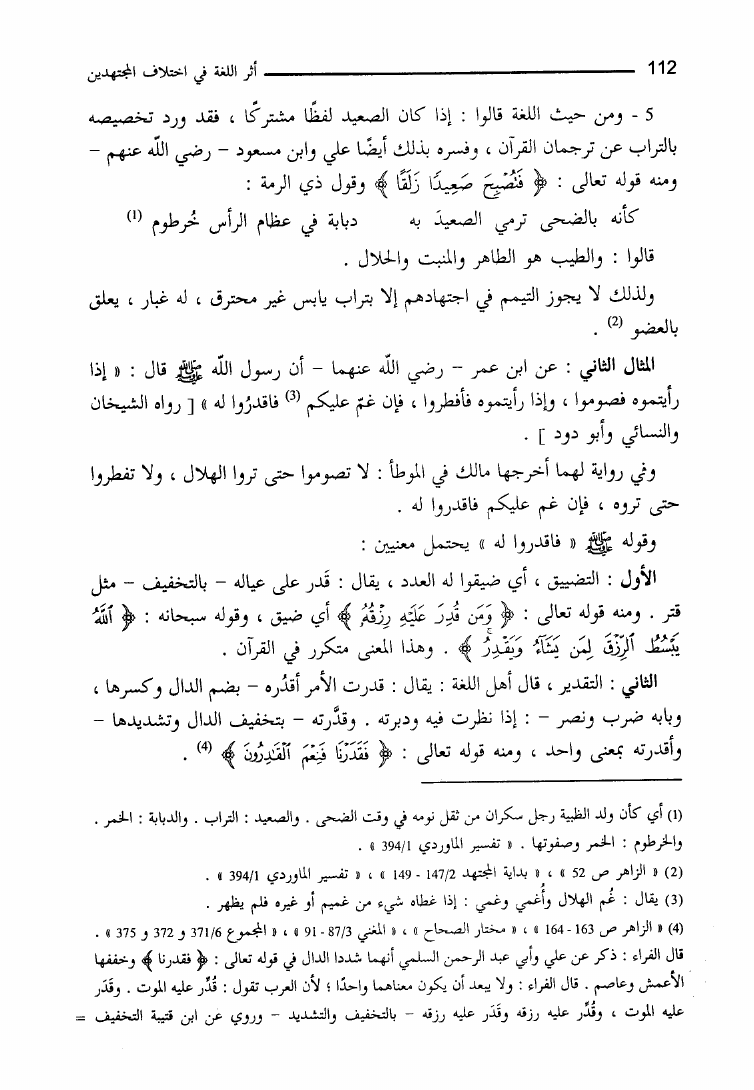 112 أثر اللغة في اختلاف المجتهدين
5 - ومن حيث اللغة قالوا : إذا كان الصعيد لفظًا مشتركًا ، فقد ورد تخصيصه
بالتراب عن ترجمان القرآن ، وفسره بذلك أيضًا علي وابن مسعود – رضي الله عنهم –
ومنه قوله تعالى : ﴿ فَتُصْبِحَ صَعِيدًا زَلَقًا ﴾ وقول ذي الرمة :
كأنه بالضحى ترمي الصعيدَ به دبابة في عظام الرأس خُرطوم (1)
قالوا : والطيب هو الطاهر والمنبت والحلال .
ولذلك لا يجوز التيمم في اجتهادهم إلا بتراب يابس غير محترق ، له غبار ، يعلق
بالعضو (2) .
المثال الثاني : عن ابن عمر – رضي الله عنهما – أن رسول الله ﷺ قال : « إذا
رأيتموه فصوموا ، وإذا رأيتموه فأفطروا ، فإن غمّ عليكم (3) فاقدرُوا له » [ رواه الشيخان
والنسائي وأبو دود ] .
وفي رواية لهما أخرجها مالك في الموطأ : لا تصوموا حتى تروا الهلال ، ولا تفطروا
حتى تروه ، فإن غم عليكم فاقدروا له .
وقوله ﷺ « فاقدروا له » يحتمل معنيين :
الأول : التضييق ، أي ضيقوا له العدد ، يقال : قَدر على عياله – بالتخفيف – مثل
قتر . ومنه قوله تعالى : ﴿ وَمَن قُدِرَ عَلَيْهِ رِزْقُهُ ﴾ أي ضيق ، وقوله سبحانه : ﴿ ٱللَّهُ
يَبْسُطُ ٱلرِّزْقَ لِمَن يَشَآءُ وَيَقْدِرُ ﴾ . وهذا المعنى متكرر في القرآن .
الثاني : التقدير ، قال أهل اللغة : يقال : قدرت الأمر أقدُره – بضم الدال وكسرها ،
وبابه ضرب ونصر – : إذا نظرت فيه ودبرته . وقدَّرته – بتخفيف الدال وتشديدها –
وأقدرته بمعنى واحد ، ومنه قوله تعالى : ﴿ فَقَدَرْنَا فَنِعْمَ ٱلْقَٰدِرُونَ ﴾ (4) .
(1) أي كأن ولد الظبية رجل سكران من ثقل نومه في وقت الضحى . والصعيد : التراب . والدبابة : الخمر .
والخرطوم : الخمر وصفوتها . « تفسير الماوردي 394/1 » .
(2) « الزاهر ص 52 » ، « بداية المجتهد 147/2 - 149 » ، « تفسير الماوردي 394/1 » .
(3) يقال : غُم الهلال وأُغمي وغمي : إذا غطاه شيء من غميم أو غيره فلم يظهر .
(4) « الزاهر ص 163 - 164 » ، « مختار الصحاح » ، « المغني 87/3 - 91 » ، « المجموع 371/6 و 372 و 375 » .
قال الفراء : ذكر عن علي وأبي عبد الرحمن السلمي أنهما شددا الدال في قوله تعالى : ﴿ فقدرنا ﴾ وخففها
الأعمش وعاصم . قال الفراء : ولا يبعد أن يكون معناهما واحدًا ؛ لأن العرب تقول : قُدِّر عليه الموت . وقَدَر
عليه الموت ، وقُدِّر عليه رزقه وقَدَر عليه رزقه – بالتخفيف والتشديد – وروي عن ابن قتيبة التخفيف =